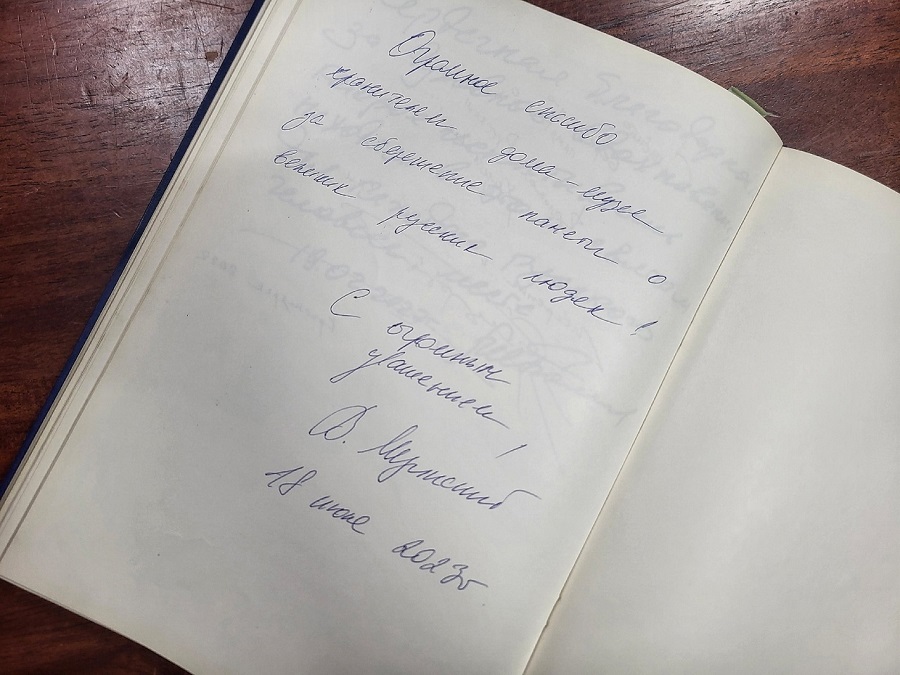 Огромное спасибо
хранителям дома-музея
за сбережение памяти о
великих русских людях!
С огромным
уважением!
18 июня 2023г